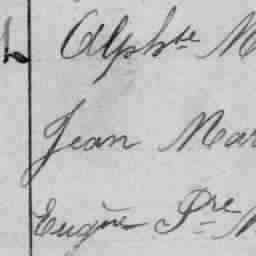 Alphse M
Jean Mar
Eugène Pre M